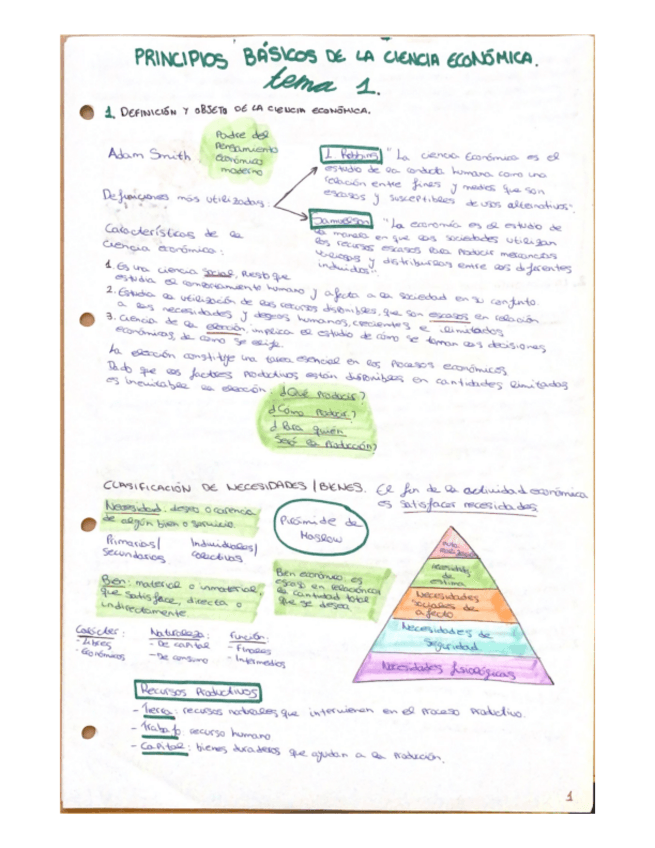 PRINCIPIOS BÁSICOS DE LA CIENCIA ECONÓMICA.
tema 1.
1. DEFINICIÓN Y OBJETO DE LA CIENCIA ECONÓMICA.
Adam Smith
Padre del
Pensamiento
económico
moderno
Definiciones más utilizadas:
L. Robbins "La ciencia Económica es el
estudio de la conducta humana como una
relación entre fines y medios que son
escasos y susceptibles de usos alternativos"
Samuelson "La economía es el estudio de
la manera en que las sociedades utilizan
los recursos escasos para producir mercancías
valiosas y distribuirlas entre los diferentes
individuos".
Características de la
ciencia económica:
1. Es una ciencia social, puesto que
estudia el comportamiento humano y afecta a la sociedad en su conjunto.
2. Estudia la utilización de los recursos disponibles, que son escasos en relación
a las necesidades y deseos humanos, crecientes e ilimitados
3. Ciencia de la elección, implica el estudio de cómo se toman las decisiones
económicas, de cómo se elige.
La elección constituye una tarea esencial en los procesos económicos.
Dado que los factores productivos están disponibles en cantidades limitadas
es inevitable la elección:
¿Qué Producir?
¿Cómo Producir?
¿Para quién
Será la Producción?
CLASIFICACIÓN DE NECESIDADES / BIENES.
El fin de la actividad económica
es satisfacer necesidades
Necesidad: deseo o carencia
de algún bien o servicio
Primarias/
Secundarios
Individuales/
colectivas
Pirámide de
Maslow
Bien: material o inmaterial,
que satisface, directa o
indirectamente
Bien económico es
escaso en relación con
la cantidad total
que se desea
Carácter:
- Libres
- Económicos
Naturaleza:
- De capital
- De consumo
Función:
- Finales
- Intermedios
necesidades
de
estima
Necesidades
sociales de
afecto
Necesidades de
Seguridad
Necesidades fisiológicas
Recursos Productivos
- Tierra: recursos naturales que intervienen en el proceso productivo.
- Trabajo: recurso humano
- Capital: bienes duraderos que ayudan a la producción.
1